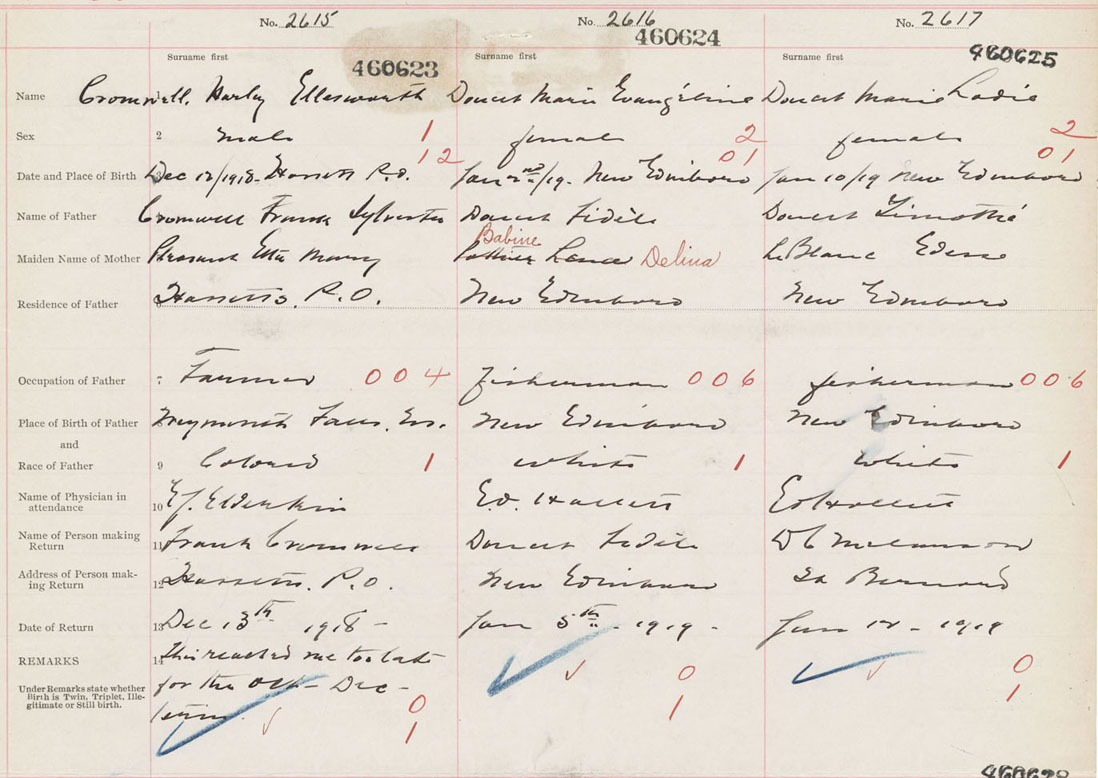 No. 2615 No. 2616 No. 2617
460623 460624 460625
Surname first Surname first Surname first
Name Cromwell, Harley Ellesworth Doucet Marie Evangéline Doucet Marie
Sex 2 male 1 female 2 female 2
12 01 01
Date and Place of Birth Dec 12/1918 - Hassetts P.O. Jan 2nd/19. New Edinboro Jan 10/19 New Edinboro
Name of Father Cromwell Frank Sylvester Doucet Fidèle Doucet Timothé
Babine
Maiden Name of Mother Pleasant Etta Delina LeBlanc
Residence of Father Hassetts. P.O. New Edinboro New Edinboro
Occupation of Father 7 Farmer 004 fisherman 006 fisherman 006
Place of Birth of Father Weymouth Falls, N.S. New Edinboro New Edinboro
and
Race of Father 9 Colored 1 white 1 white 1
Name of Physician in
attendance 10 E.J. Elderkin Ed. Hallett Ed Hallett
Name of Person making
Return 11 Frank Cromwell Doucet Fidèle D C Melanson
Address of Person mak-
ing Return 12 Hassetts. P.O. New Edinboro St Bernard
Date of Return 13 Dec 13th 1918 - Jan 5th - 1919 - Jan 12 - 1919
REMARKS 14 This reached me too late
for the Oct - Dec -
term.
Under Remarks state whether
Birth is Twin, Triplet, Ille-
gitimate or Still birth.
0 0 0
1 1 1